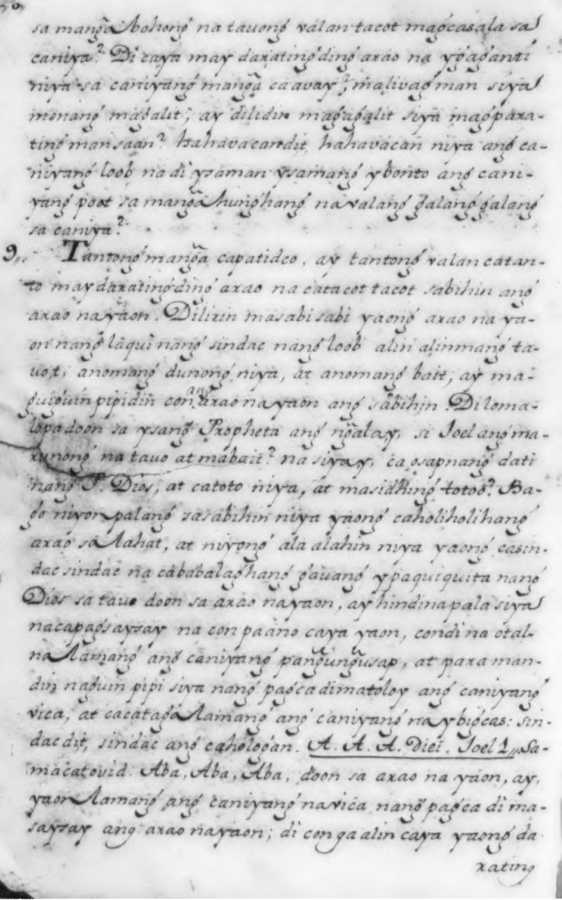 sa mang̃a bohong̃ na tauong̃ valan tacot magcasala sa
caniya? Di caya may darating̃ ding̃ arao na ygaganai
niya sa caniyang mang̃a caavay; malivag man siya
monang̃ magalit, ay dilidin magagalit siya magpara-
ting̃ man saan? hahavacandit, hahavacan niya ang̃ ca-
niyang̃ loob na di ysaman ysamang̃ ybonto ang̃ cani-
yang̃ poot sa mang̃a hunghang̃ na valang̃ galang̃ galang̃
sa caniya?
9,, Tantong̃ mang̃a capatidco, ay tantong̃ valan catan-
to may darating̃ ding̃ arao na catacot tacot sabihin ang̃
arao na yaon. Dilirin masabi sabi yaong̃ arao na ya-
on nang̃ laqui nang̃ sindac nang̃ loob alin alinmang̃ ta-
vo,t, anomang̃ dunong̃ niya, at anomang̃ bait, ay ma-
guiguin pipidin con arao na yaon ang̃ sabihin. Diloma-
lopa doon sa ysang̃ Propheta ang̃ ng̃alay, si Joel ang̃ ma-
runong̃ na tauo at mabait? na siyay, ca osapnang̃ dati
nang̃ P. Dios, at catoto niya, at masidhing̃ totoo? Ba-
go niyon palang̃ sasabihin niya yaong̃ caholiholihang̃
arao sa lahat, at niyong̃ ala alahin niya yaong̃ casin-
dac sindac na cababalaghang̃ gauang̃ ypaquiquita nang̃
Dios sa tauo doon sa arao na yaon, ay hindina pala siya
nacapagsaysay na con paano caya yaon, condi na otal-
na lamang̃ ang̃ caniyang̃ pang̃ung̃usap, at para man-
din naguin pipi siya nang̃ pagca dimatoloy ang̃ caniyang̃
vica, at cacataga lamang̃ ang̃ caniyang̃ na ybigcas: sin-
dac dit, sindac ang̃ cahologan. A. A. A. Diei. Joel 1,, Sa-
macatovid. Aba, Aba, Aba, doon sa arao na yaon, ay,
yaon lamang̃ ang̃ caniyang̃ navica nang̃ pagca di ma-
saysay ang arao na yaon; di con ga alin caya yaong̃ da
rating̃